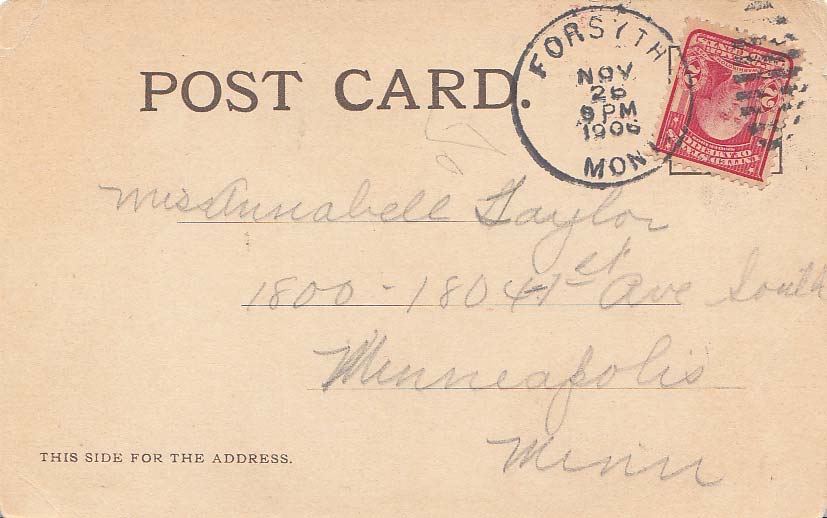 POST CARD.
FORSYTH
NOV
26
8 PM
1906
MONT.
Miss Annabell Taylor
1800 - 1804 1st Ave South
Minneapolis
Minn
THIS SIDE FOR THE ADDRESS.